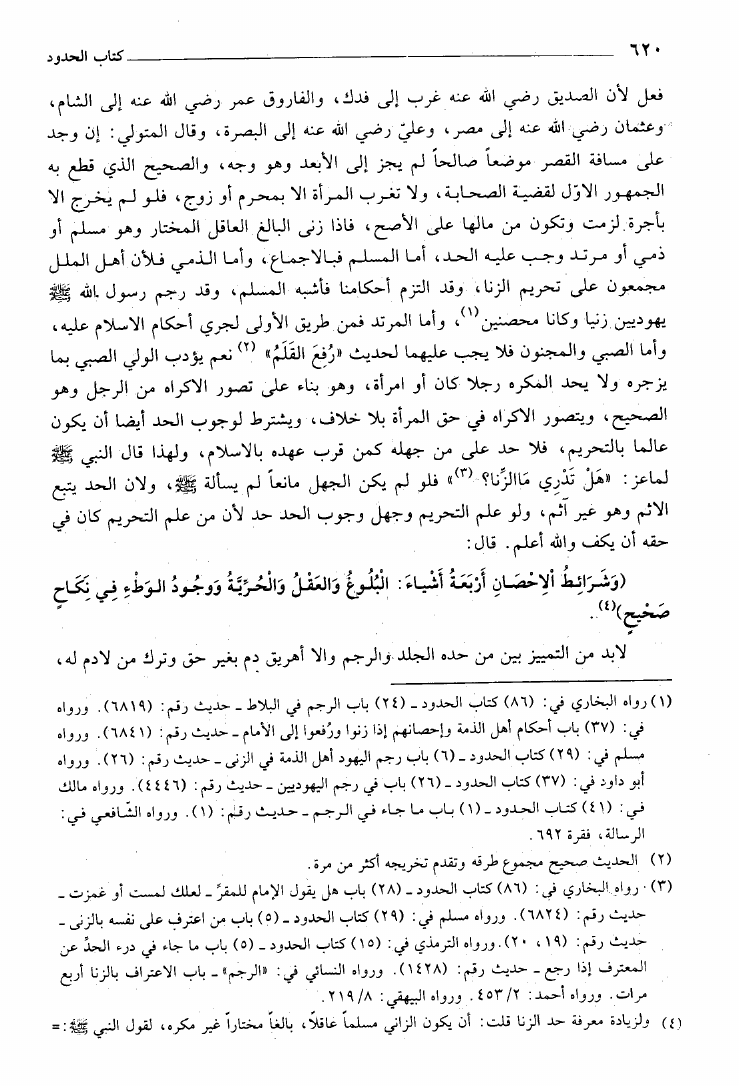 ٦٢٠ كتاب الحدود
فعل لأن الصديق رضي الله عنه غرب إلى فدك، والفاروق عمر رضي الله عنه إلى الشام،
وعثمان رضي الله عنه إلى مصر، وعليّ رضي الله عنه إلى البصرة، وقال المتولي: إن وجد
على مسافة القصر موضعاً صالحاً لم يجز إلى الأبعد وهو وجه، والصحيح الذي قطع به
الجمهور الاوّل لقضية الصحابة، ولا تغرب المرأة الا بمحرم أو زوج، فلو لم يخرج الا
بأجرة لزمت وتكون من مالها على الأصح، فاذا زنى البالغ العاقل المختار وهو مسلم أو
ذمي أو مرتد وجب عليه الحد، أما المسلم فبالاجماع، وأما الذمي فلأن أهل الملل
مجمعون على تحريم الزنا، وقد التزم أحكامنا فأشبه المسلم، وقد رجم رسول الله ﷺ
يهوديين زنيا وكانا محصنين(١)، وأما المرتد فمن طريق الأولى لجري أحكام الاسلام عليه،
وأما الصبي والمجنون فلا يجب عليهما لحديث «رُفِعَ القَلَمُ» (٢) نعم يؤدب الولي الصبي بما
يزجره ولا يحد المكره رجلا كان أو امرأة، وهو بناء على تصور الاكراه من الرجل وهو
الصحيح، ويتصور الاكراه في حق المرأة بلا خلاف، ويشترط لوجوب الحد أيضا أن يكون
عالما بالتحريم، فلا حد على من جهله كمن قرب عهده بالاسلام، ولهذا قال النبي ﷺ
لماعز: «هَلْ تَدْرِي مَاالزِّنا؟ (٣)» فلو لم يكن الجهل مانعاً لم يسألة ﷺ، ولان الحد يتبع
الاثم وهو غير آثم، ولو علم التحريم وجهل وجوب الحد حد لأن من علم التحريم كان في
حقه أن يكف والله أعلم. قال:
(وَشَرَائِطُ اْلاِحْصَانِ أَرْبَعَةُ أَشْيَاءَ: الْبُلُوغُ وَالعَقْلُ وَالْحُرِّيَّةُ وَوجُودُ الوَطْءِ فِي نِكَاحٍ
صَحْيحٍ)(٤).
لابد من التمييز بين من حده الجلد والرجم والا أهريق دم بغير حق وترك من لادم له،
(١) رواه البخاري في: (٨٦) كتاب الحدود ـ (٢٤) باب الرجم في البلاط ـ حديث رقم: (٦٨١٩). ورواه
في: (٣٧) باب أحكام أهل الذمة وإحصانهم إذا زنوا ورُفعوا إلى الأمام ـ حديث رقم: (٦٨٤١). ورواه
مسلم في: (٢٩) كتاب الحدود ـ (٦) باب رجم اليهود أهل الذمة في الزنى ـ حديث رقم: (٢٦). ورواه
أبو داود في: (٣٧) كتاب الحدود ـ (٢٦) باب في رجم اليهوديين ـ حديث رقم: (٤٤٤٦). ورواه مالك
في: (٤١) كتاب الحدود ـ (١) باب ما جاء في الرجم ـ حديث رقم: (١). ورواه الشافعي في:
الرسالة، فقرة ٦٩٢.
(٢) الحديث صحيح مجموع طرقه وتقدم تخريجه أكثر من مرة.
(٣) رواه البخاري في: (٨٦) كتاب الحدود ـ (٢٨) باب هل يقول الإمام للمقرِّ ـ لعلك لمست أو غمزت ـ
حديث رقم: (٦٨٢٤). ورواه مسلم في: (٢٩) كتاب الحدود ـ (٥) باب من اعترف على نفسه بالزنى ـ
حديث رقم: (١٩، ٢٠). ورواه الترمذي في: (١٥) كتاب الحدود ـ (٥) باب ما جاء في درء الحدِّ عن
المعترف إذا رجع ـ حديث رقم: (١٤٢٨). ورواه النسائي في: «الرجم» ـ باب الاعتراف بالزنا أربع
مرات. ورواه أحمد: ٢/ ٤٥٣. ورواه البيهقي: ٨/ ٢١٩.
(٤) ولزيادة معرفة حد الزنا قلت: أن يكون الزاني مسلماً عاقلاً، بالغاً مختاراً غير مكره، لقول النبي ﷺ: =